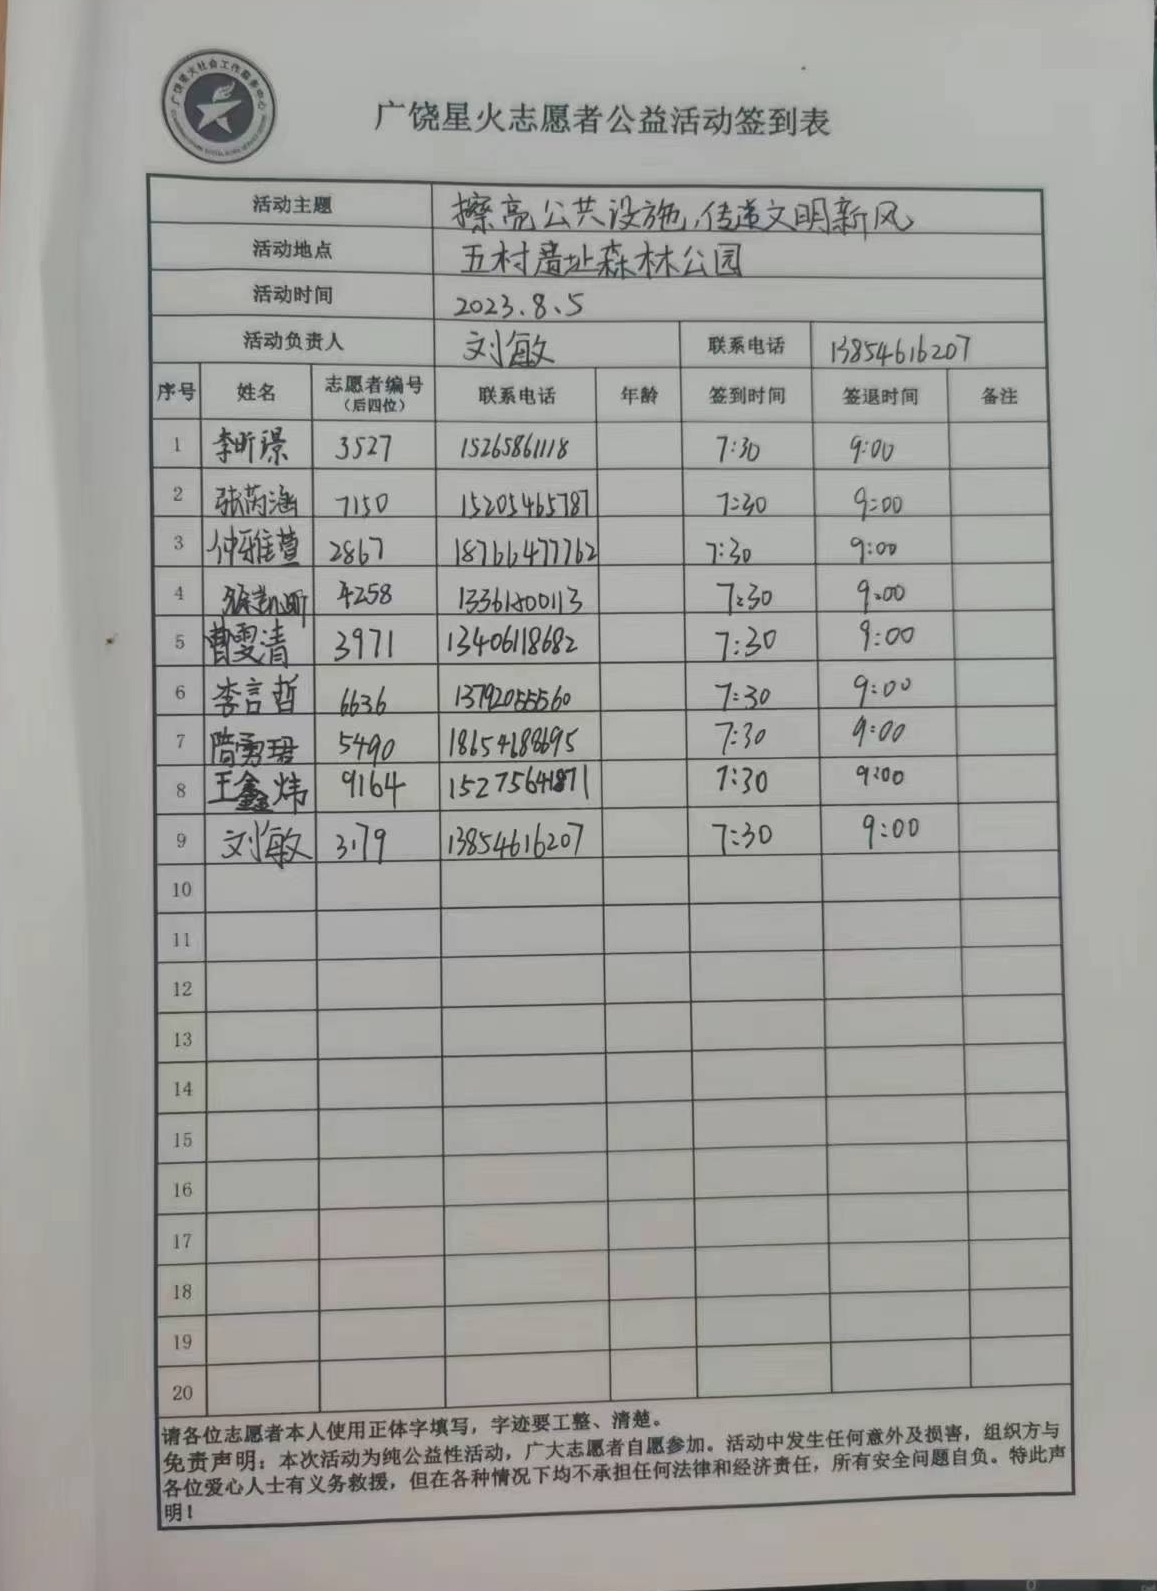 广饶星火社会工作服务中心
广饶星火志愿者公益活动签到表
活动主题 擦亮公共设施,传递文明新风
活动地点 五村遗址森林公园
活动时间 2023.8.5
活动负责人 刘敏 联系电话 13854616207
序号 姓名 志愿者编号(后四位) 联系电话 年龄 签到时间 签退时间 备注
1 李昕璟 3527 15265861118 7:30 9:00
2 张芮涵 7150 15205465787 7:30 9:00
3 仲雅萱 2867 18766477762 7:30 9:00
4 张凯昕 4258 13361500113 7:30 9:00
5 曹雯清 3971 13406118682 7:30 9:00
6 李言哲 6636 13792055560 7:30 9:00
7 隋勇珺 5490 18654688695 7:30 9:00
8 王鑫炜 9164 15275641871 7:30 9:00
9 刘敏 3179 13854616207 7:30 9:00
10
11
12
13
14
15
16
17
18
19
20
请各位志愿者本人使用正体字填写,字迹要工整、清楚。
免责声明:本次活动为纯公益性活动,广大志愿者自愿参加。活动中发生任何意外及损害,组织方与
各位爱心人士有义务救援,但在各种情况下均不承担任何法律和经济责任,所有安全问题自负。特此声
明!